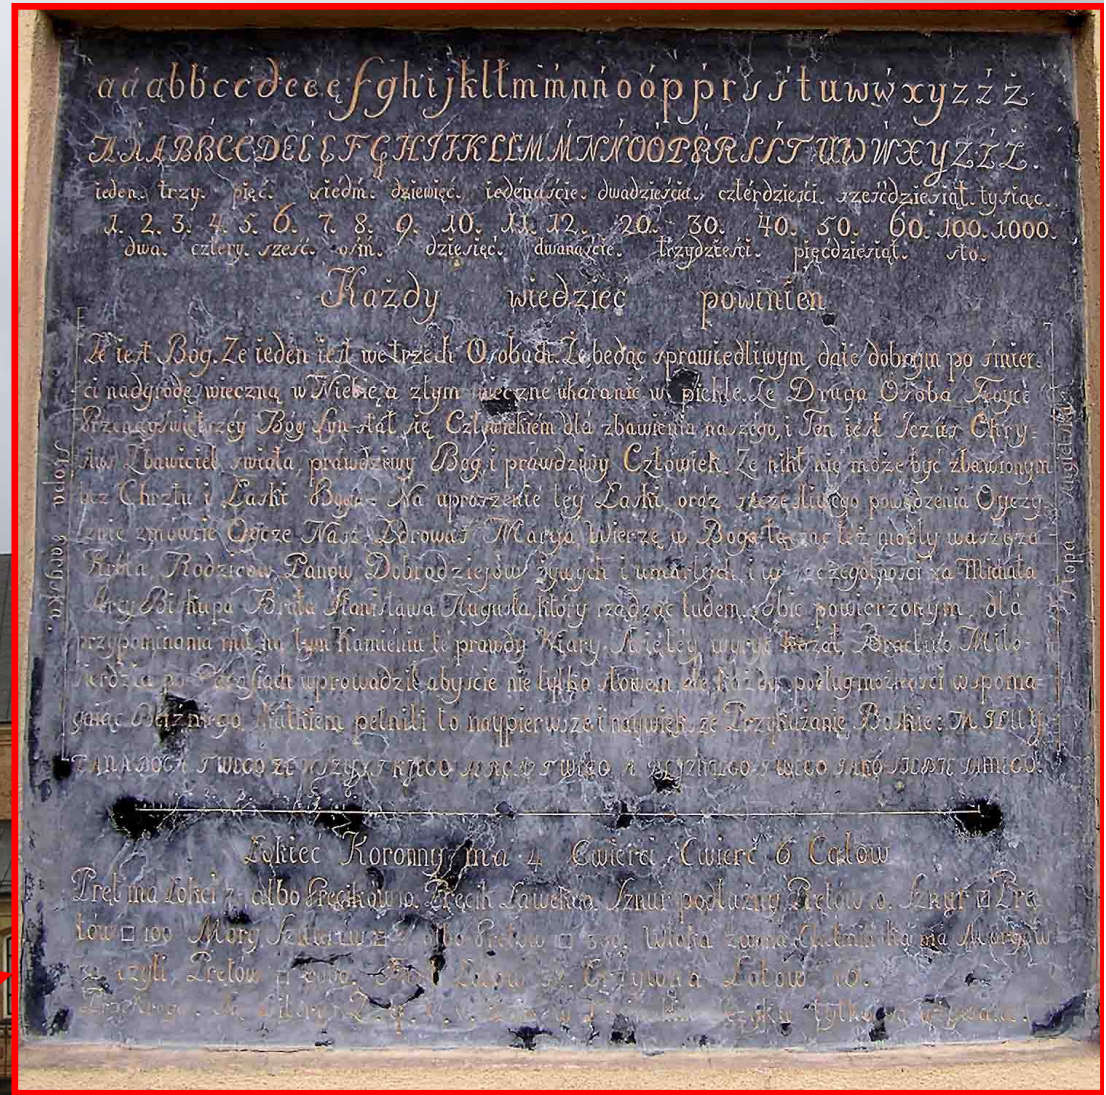 a á ą b b́ c ć d e é ę f g h i j k l ł m ḿ n ń o ó p ṕ r s ś t u w ẃ x y z ź ż
A Á Ą B B́ C Ć D E É Ę F G H I J K L Ł M Ḿ N Ń O Ó P Ṕ R S Ś T U W Ẃ X Y Z Ź Ż.
ieden. trzy. pięć. siedḿ. dziewięć. iedénaście. dwadzieścia. cztérdzieści. sześćdziesiąt. tysiąc.
1. 2. 3. 4. 5. 6. 7. 8. 9. 10. 11. 12. 20. 30. 40. 50. 60. 100. 1000.
dwa. cztéry. sześć. ośḿ. dziesięć. dwanaście. trzydzieści. pięćdziesiąt. sto.
Każdy wiedzieć powinien
Że iest Bog. Że ieden iest we trzech Osobach. Że będąc sprawiedliwym, daie dobrym po śmier-
ci nadgrodę wieczną w Niebie, a złym wieczne ukaranie w piekle. Że Druga Osoba Troycé
Przenayświętszey Bog Syn stał się Człowiekiém dla zbawienia naszégo, i Ten iest Jezus Chry-
stus Zbawiciel świata, prawdziwy Bog, i prawdziwy Człowiek. Że nikt nie może być zbawionym
bez Chrztu i Łaski Bogá. Na uproszenie tey Łaski, oraz szczęśliwégo powodzenia Oyczy-
znie zmówcie Oycze Nasz, Zdrowaś Marya, Wierzę w Boga łącząc też modły waszé za
Króla, Rodziców, Panow, Dobrodziejów żywych i umarłych, i w szczególności za Michała
Arcy-Biskupa Brata Stanisława Augusta, który rządząc ludem sobie powierzonym, dla
przypominania mu, na tym Kamieniu té prawdy Wiary Swiętéy wyryć kazał, Bractwo Miło-
sierdzia po Parafiach wprowadził, abyście nie tylko słowem ale każdy podług możności wspoma-
gaiąc Bliźniego Uczynkiem pełnili to naypierwsze i największe Przykazanie Boskie: MIŁUY
PANA BOGA TWEGO ZE WSZYSTKIEGO SERCA TWEGO, A BLIŹNIEGO TWEGO JAKO SIEBIE SAMEGO.
Stopa Paryzka.
Stopa Angielska
Łokieć Koronny ma 4 Cwierci, Cwierć 6 Calów
Pręt ma Łokci 7½ albo Pręcików 10. Pręcik Ławek 10. Sznur podłużny Prętów 10. Sznur □ Prę-
tów □ 100 Morg Sznurów □ 3 albo Prętów □ 300. Włoka Ziemi Chełmińska ma Morgów
30 czyli Prętów □ 9000. Funt Łutów 32. Grzywna Łotów 16.